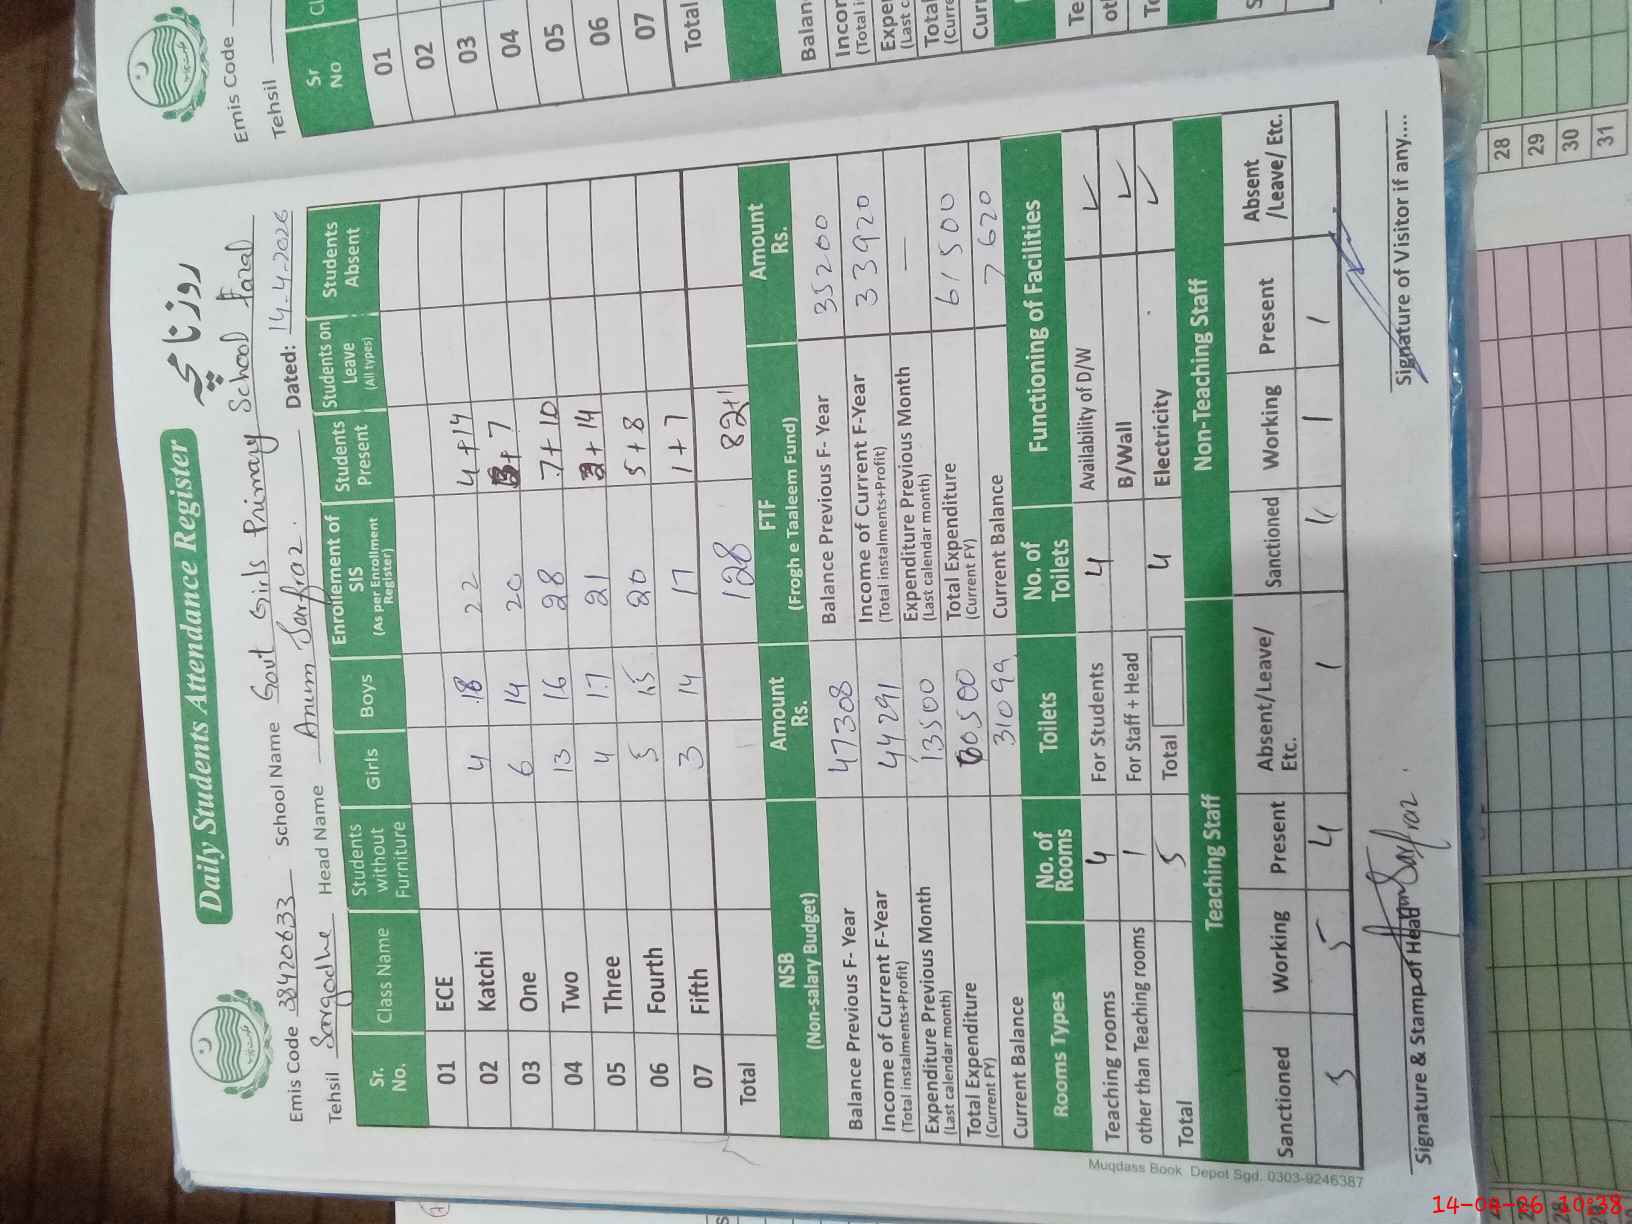 Daily Students Attendance Register روزنامچہ
Emis Code 38420633 School Name Govt Girls Primary School Faral
Tehsil Sargodha Head Name Anum Sarfraz. Dated: 14-4-2026
Sr. No. Class Name Students without Furniture Girls Boys Enrollement of SIS (As per Enrollment Register) Students Present Students on Leave (All types) Students Absent
01 ECE
02 Katchi 4 18 22 4+14
03 One 6 14 20 + 7
04 Two 13 16 28 7+10
05 Three 4 17 21 + 14
06 Fourth 5 15 20 5+8
07 Fifth 3 14 17 1+7
Total 128 82+1
NSB (Non-salary Budget) Amount Rs. FTF (Frogh e Taaleem Fund) Amount Rs.
Balance Previous F- Year 47308 Balance Previous F- Year 35200
Income of Current F-Year (Total instalments+Profit) 44291 Income of Current F-Year (Total instalments+Profit) 33920
Expenditure Previous Month (Last calendar month) 13500 Expenditure Previous Month (Last calendar month) —
Total Expenditure (Current FY) 60500 Total Expenditure (Current FY) 61500
Current Balance 31099 Current Balance 7620
Rooms Types No. of Rooms Toilets No. of Toilets Functioning of Facilities
Teaching rooms 4 For Students 4 Availability of D/W ✓
other than Teaching rooms 1 For Staff + Head B/Wall ✓
Total 5 Total 4 Electricity ✓
Teaching Staff Non-Teaching Staff
Sanctioned Working Present Absent/Leave/ Etc. Sanctioned Working Present Absent /Leave/ Etc.
5 5 4 1 1 1
Signature & Stamp of Head Anum Sarfraz. Signature of Visitor if any....
Muqdass Book Depot Sgd. 0303-9246387
Emis Code
Tehsil
Sr No
01
02
03
04
05
06
07
Total
28
29
30
31
14-04-26 10:38